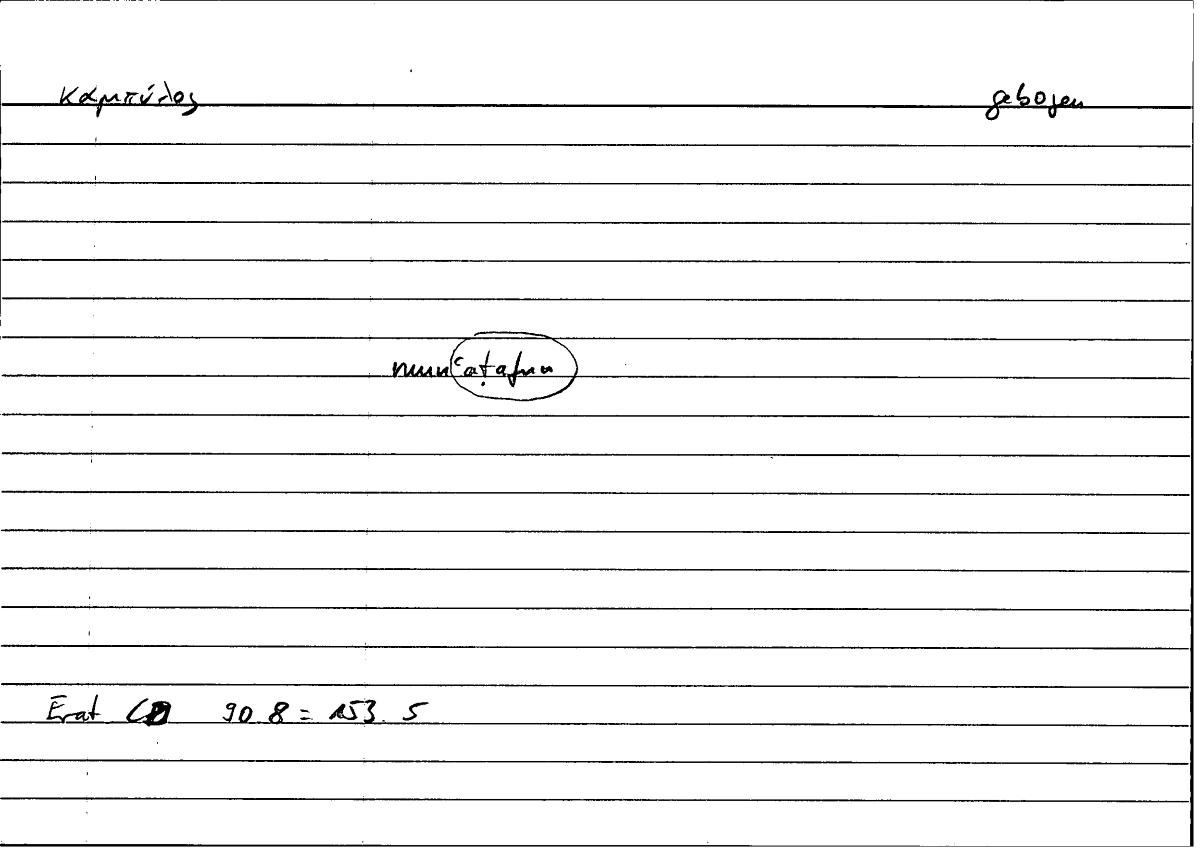 καμπύλος gebogen
munʿaṭafun
Erat 90. 8 = 153. 5